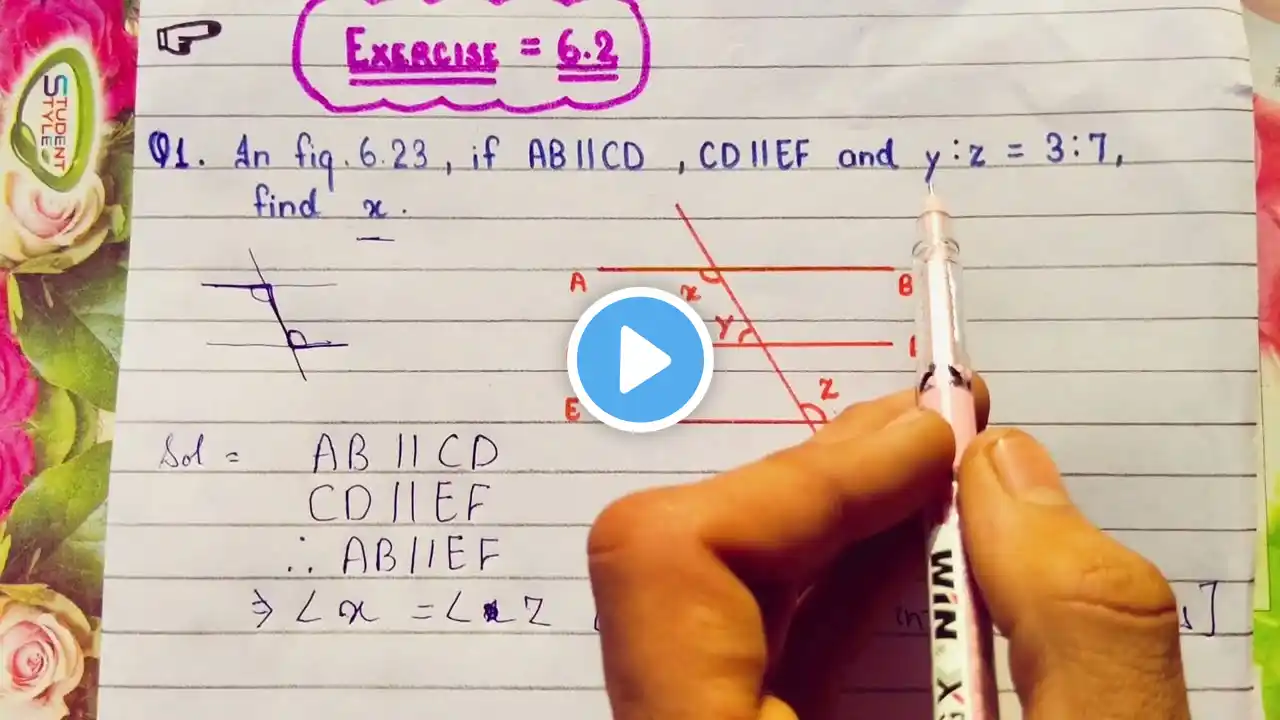 EXERCISE = 6.2
STUDENT
STYLE
Q1. In fig. 6.23, if AB||CD, CD||EF and y:z = 3:7,
find x.
A B
x
y
z
E
Sol = AB || CD
CD || EF
∴ AB || EF
⇒ ∠x = ∠z [
]
WIN